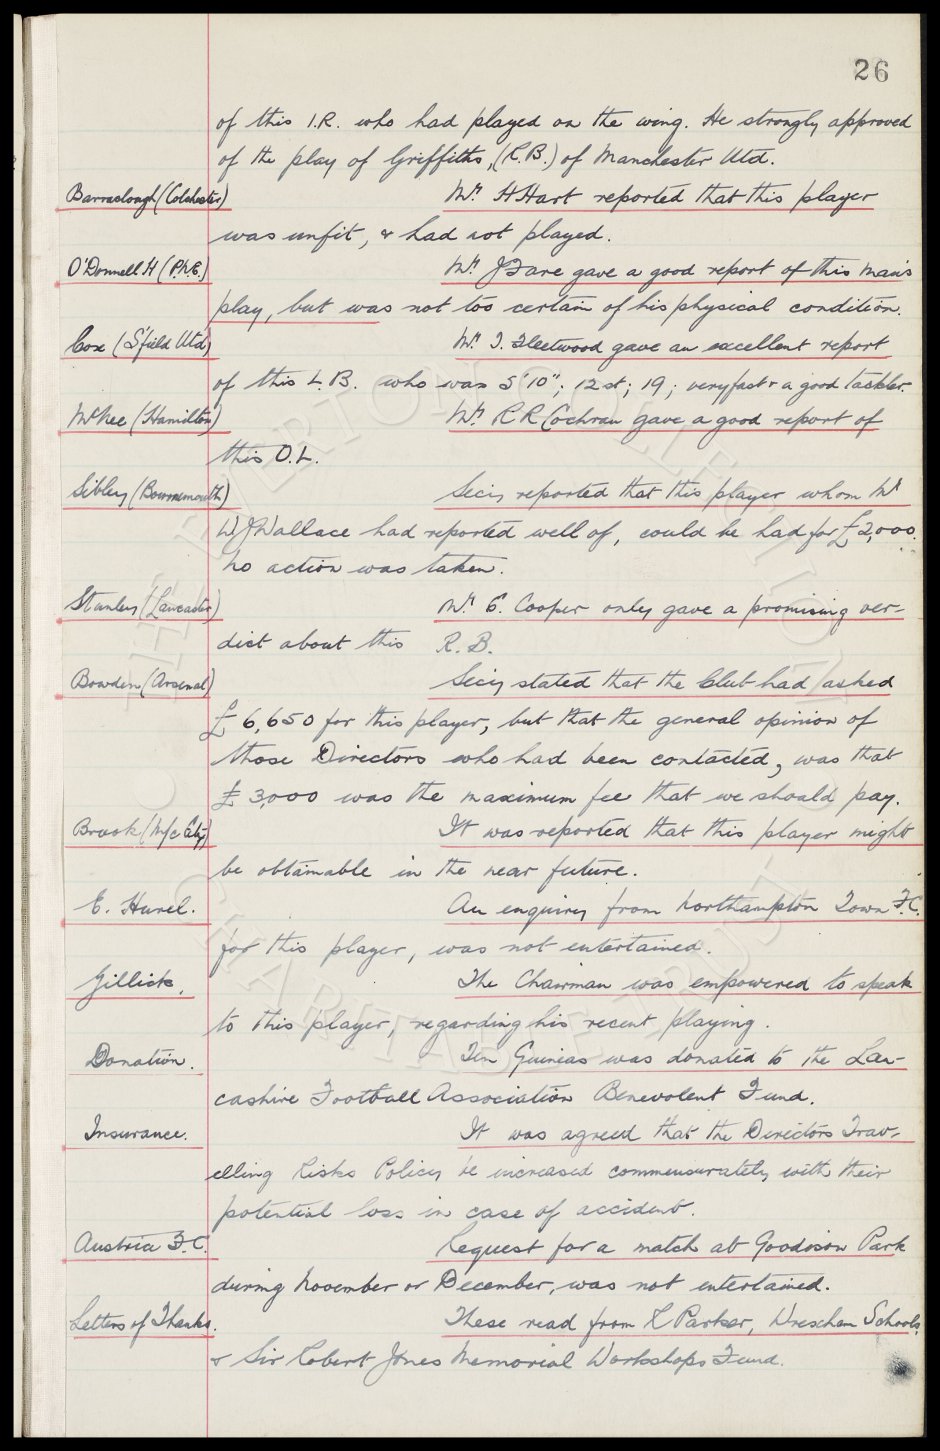 26
of this I.R. who had played on the wing. He strongly approved
of the play of Griffiths, (R.B.) of Manchester Utd.
Barraclough (Colchester) Mr. H Hart reported that this player
was unfit, & had not played.
O'Donnell H (P.N.E.) Mr. J Fare gave a good report of this man's
play, but was not too certain of his physical condition.
Cox (S'field Utd) Mr. T. Fleetwood gave an excellent report
of this L.B. who was 5'10"; 12st; 19; very fast & a good tackler.
McKee (Hamilton) Mr. R R Cochran gave a good report of
this O.L.
Sibley (Bournemouth) Secy reported that this player whom Mr
W J Wallace had reported well of, could be had for £2,000.
No action was taken.
Stanley (Lancaster) Mr. E. Cooper only gave a promising ver-
dict about this R.B.
Bowden (Arsenal) Secy stated that the Club had asked
£6,650 for this player, but that the general opinion of
those Directors who had been contacted, was that
£3,000 was the maximum fee that we should pay.
Brook (M/c City) It was reported that this player might
be obtainable in the near future.
E. Hurel. An enquiry from Northampton Town F.C.
for this player, was not entertained.
Gillick. The Chairman was empowered to speak
to this player, regarding his recent playing.
Donation. Ten Guineas was donated to the Lan-
cashire Football Association Benevolent Fund.
Insurance. It was agreed that the Directors Trav-
elling Risks Policy be increased commensurately with their
potential loss in case of accident.
Austria F.C. Request for a match at Goodison Park
during November or December, was not entertained.
Letters of Thanks. These read from R Parker, Wrexham Schools,
& Sir Robert Jones Memorial Workshops Fund.
THE EVERTON COLLECTION
CHARITABLE TRUST